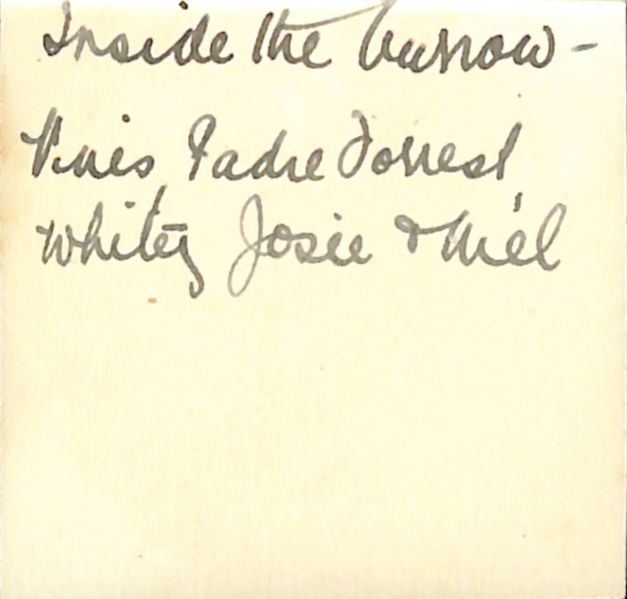 Inside the burrow -
Padre Forrest,
Whitey Josie & Mél